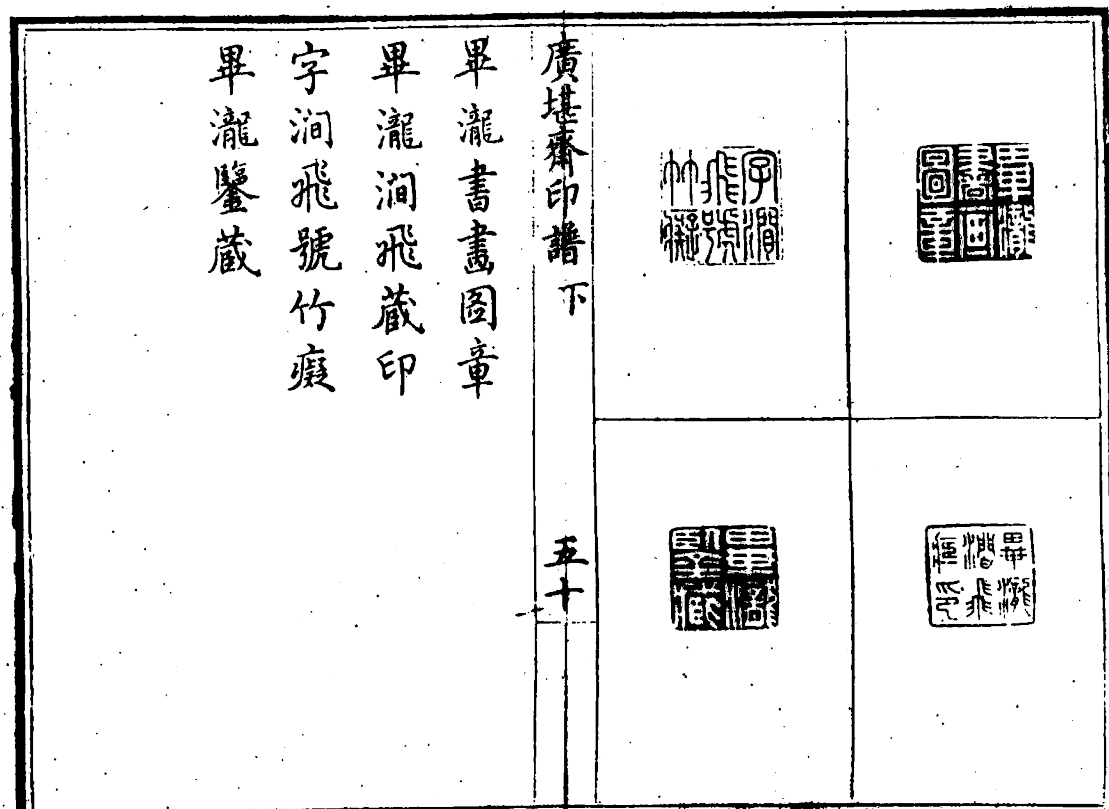 畢瀧書畫圖章
畢瀧澗飛藏印
字澗飛號竹癡
畢瀧鑒藏
廣堪齋印譜 下
五十
畢瀧書畫圖章
畢瀧澗飛藏印
字澗飛號竹癡
畢瀧鑒藏